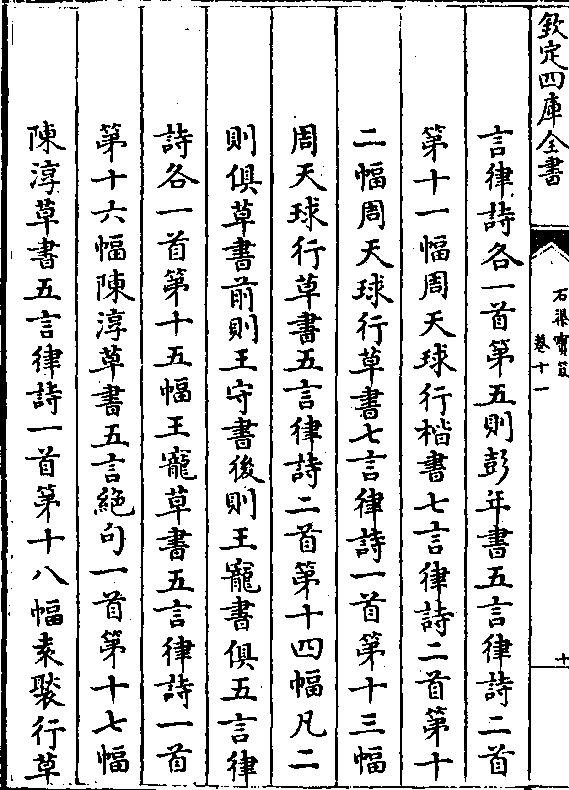 欽定四庫全書
石渠寶笈
卷十一
十
言律詩各一首第五則彭年書五言律詩二首
第十一幅周天球行楷書七言律詩二首第十
二幅周天球行草書七言律詩一首第十三幅
周天球行草書五言律詩二首第十四幅凡二
則俱草書前則王守書後則王寵書俱五言律
詩各一首第十五幅王寵草書五言律詩一首
第十六幅陳淳草書五言絶句一首第十七幅
陳淳草書五言律詩一首第十八幅袁褧行草